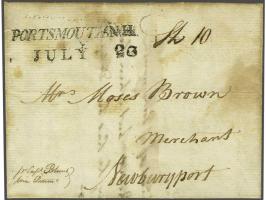 PORTSMOUTH, N.H.
JULY 23
Sh 10
Mrs Moses Brown
Merchant
Newburyport